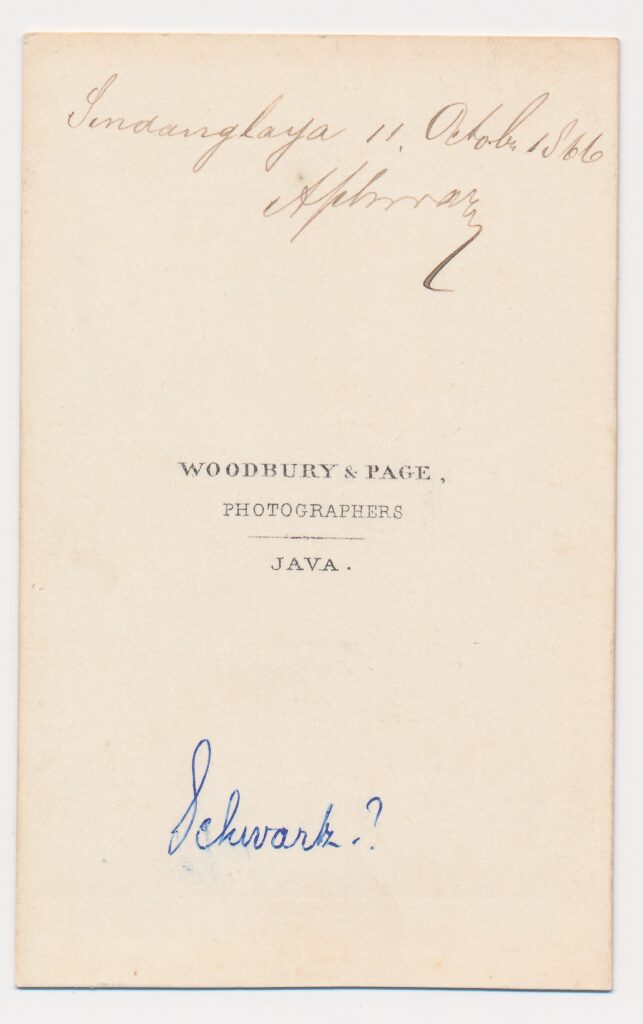 Sindanglaya 11. Octobr 1866
WOODBURY & PAGE,
PHOTOGRAPHERS
JAVA.
Schwartz.?